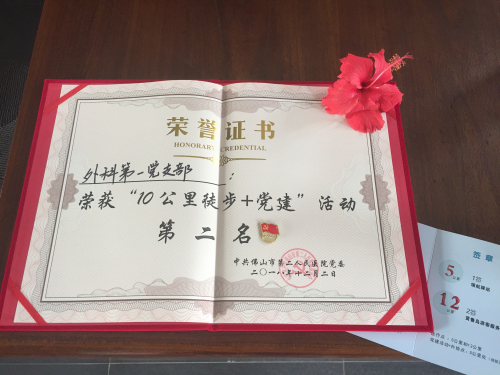 荣誉证书
HONORARY CREDENTIAL
外科第一党支部：
荣获“10公里徒步+党建”活动
第二名
中共佛山市第二人民医院党委
二〇一八年十二月二日
签章
5
1签
12
2签